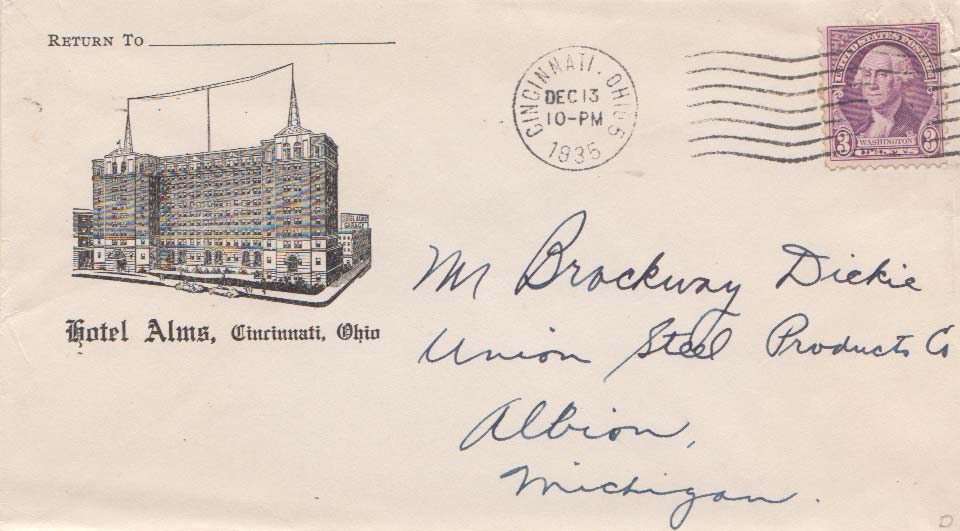 RETURN TO
CINCINNATI, OHIO 5
DEC 13
10-PM
1935
UNITED STATES POSTAGE
3 WASHINGTON 3
CENTS
HOTEL ALMS
GARAGE
Hotel Alms, Cincinnati, Ohio
Mr Brockway Dickie
Union Steel Products Co
Albion,
Michigan.